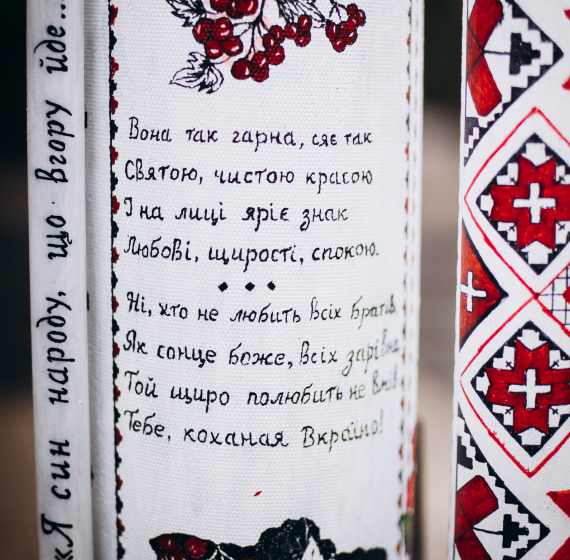 Я син народу, що вгору йде...
Вона так гарна, сяє так
Святою, чистою красою
І на лиці яріє знак
Любові, щирості, спокою.
Ні, хто не любить всіх братів
Як сонце боже, всіх зарівно
Той щиро полюбить не вмів
Тебе, коханая Вкраїно!